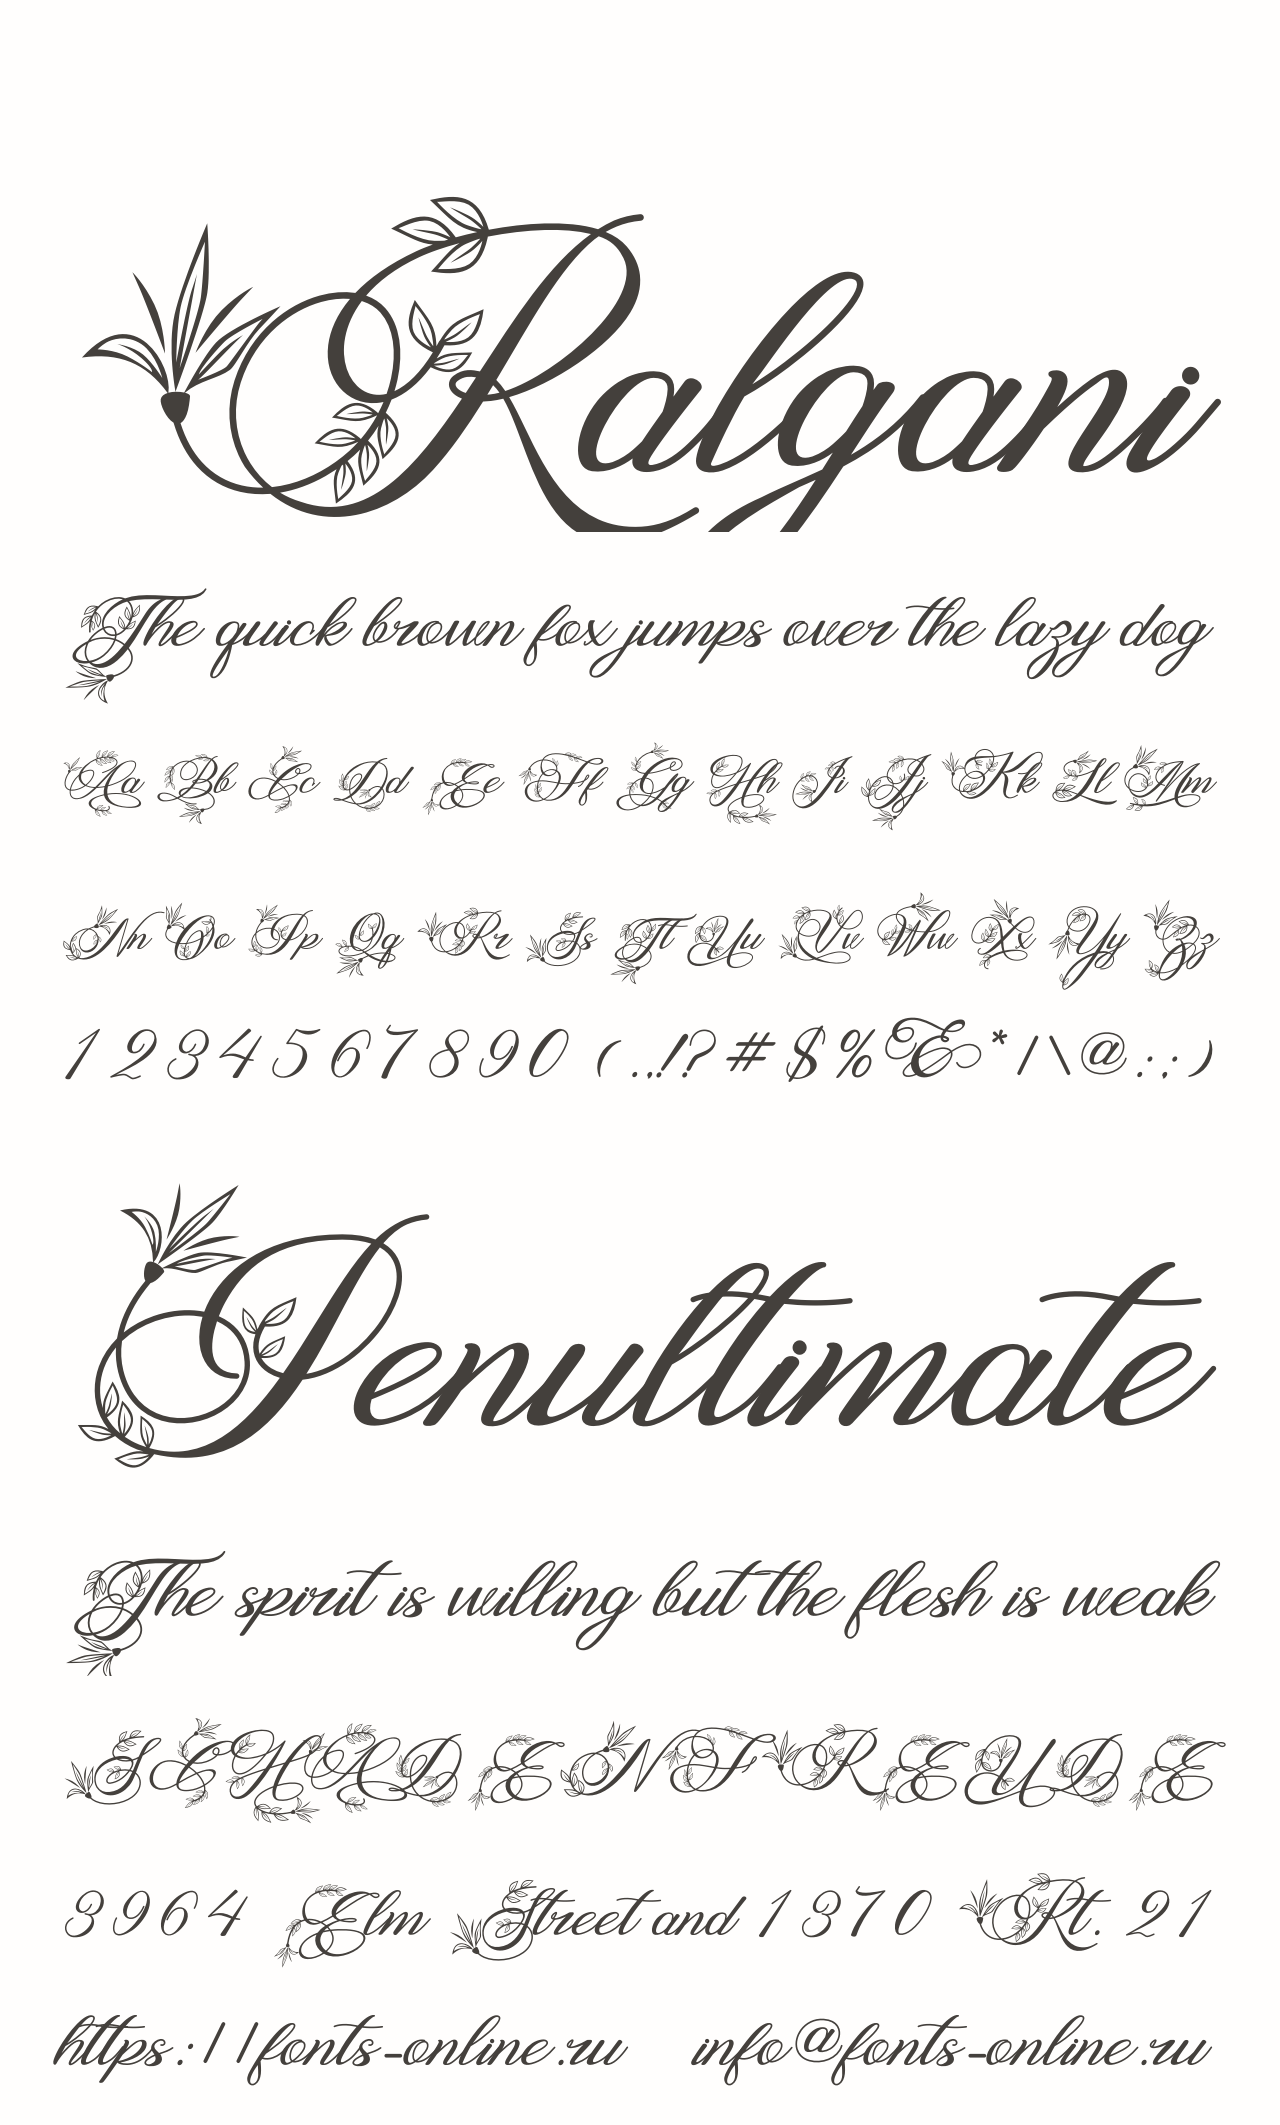 Ralgani
The quick brown fox jumps over the lazy dog
Aa Bb Cc Dd Ee Ff Gg Hh Ii Jj Kk Ll Mm
Nn Oo Pp Qq Rr Ss Tt Uu Vv Ww Xx Yy Zz
1 2 3 4 5 6 7 8 9 0 ( . , ! ? # $ % & * / \ @ : ; )
Penultimate
The spirit is willing but the flesh is weak
SCHADENFREUDE
3964 Elm Street and 1370 Rt. 21
https://fonts-online.ru info@fonts-online.ru